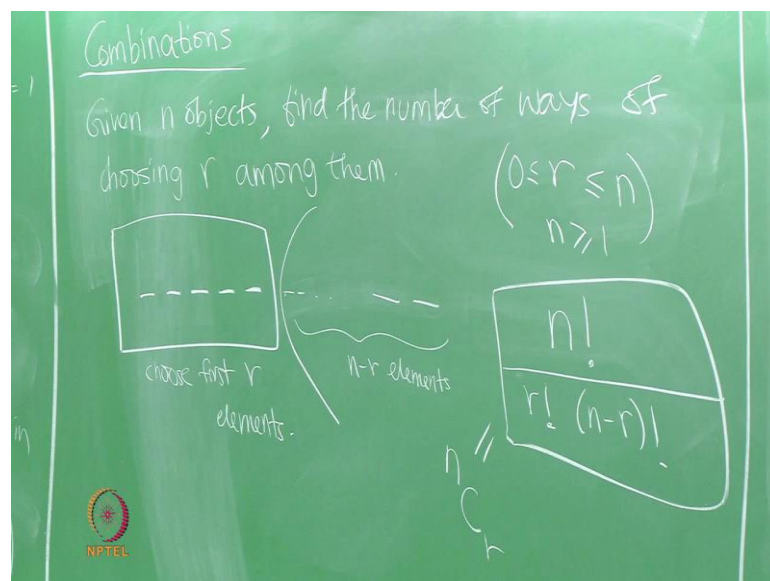 = 1
Combinations
Given n objects, find the number of ways of
choosing r among them.
(0 ≤ r ≤ n
n ≥ 1)
choose first r
elements.
n-r elements
n!
r! (n-r)!
=
n
C
r
in
NPTEL